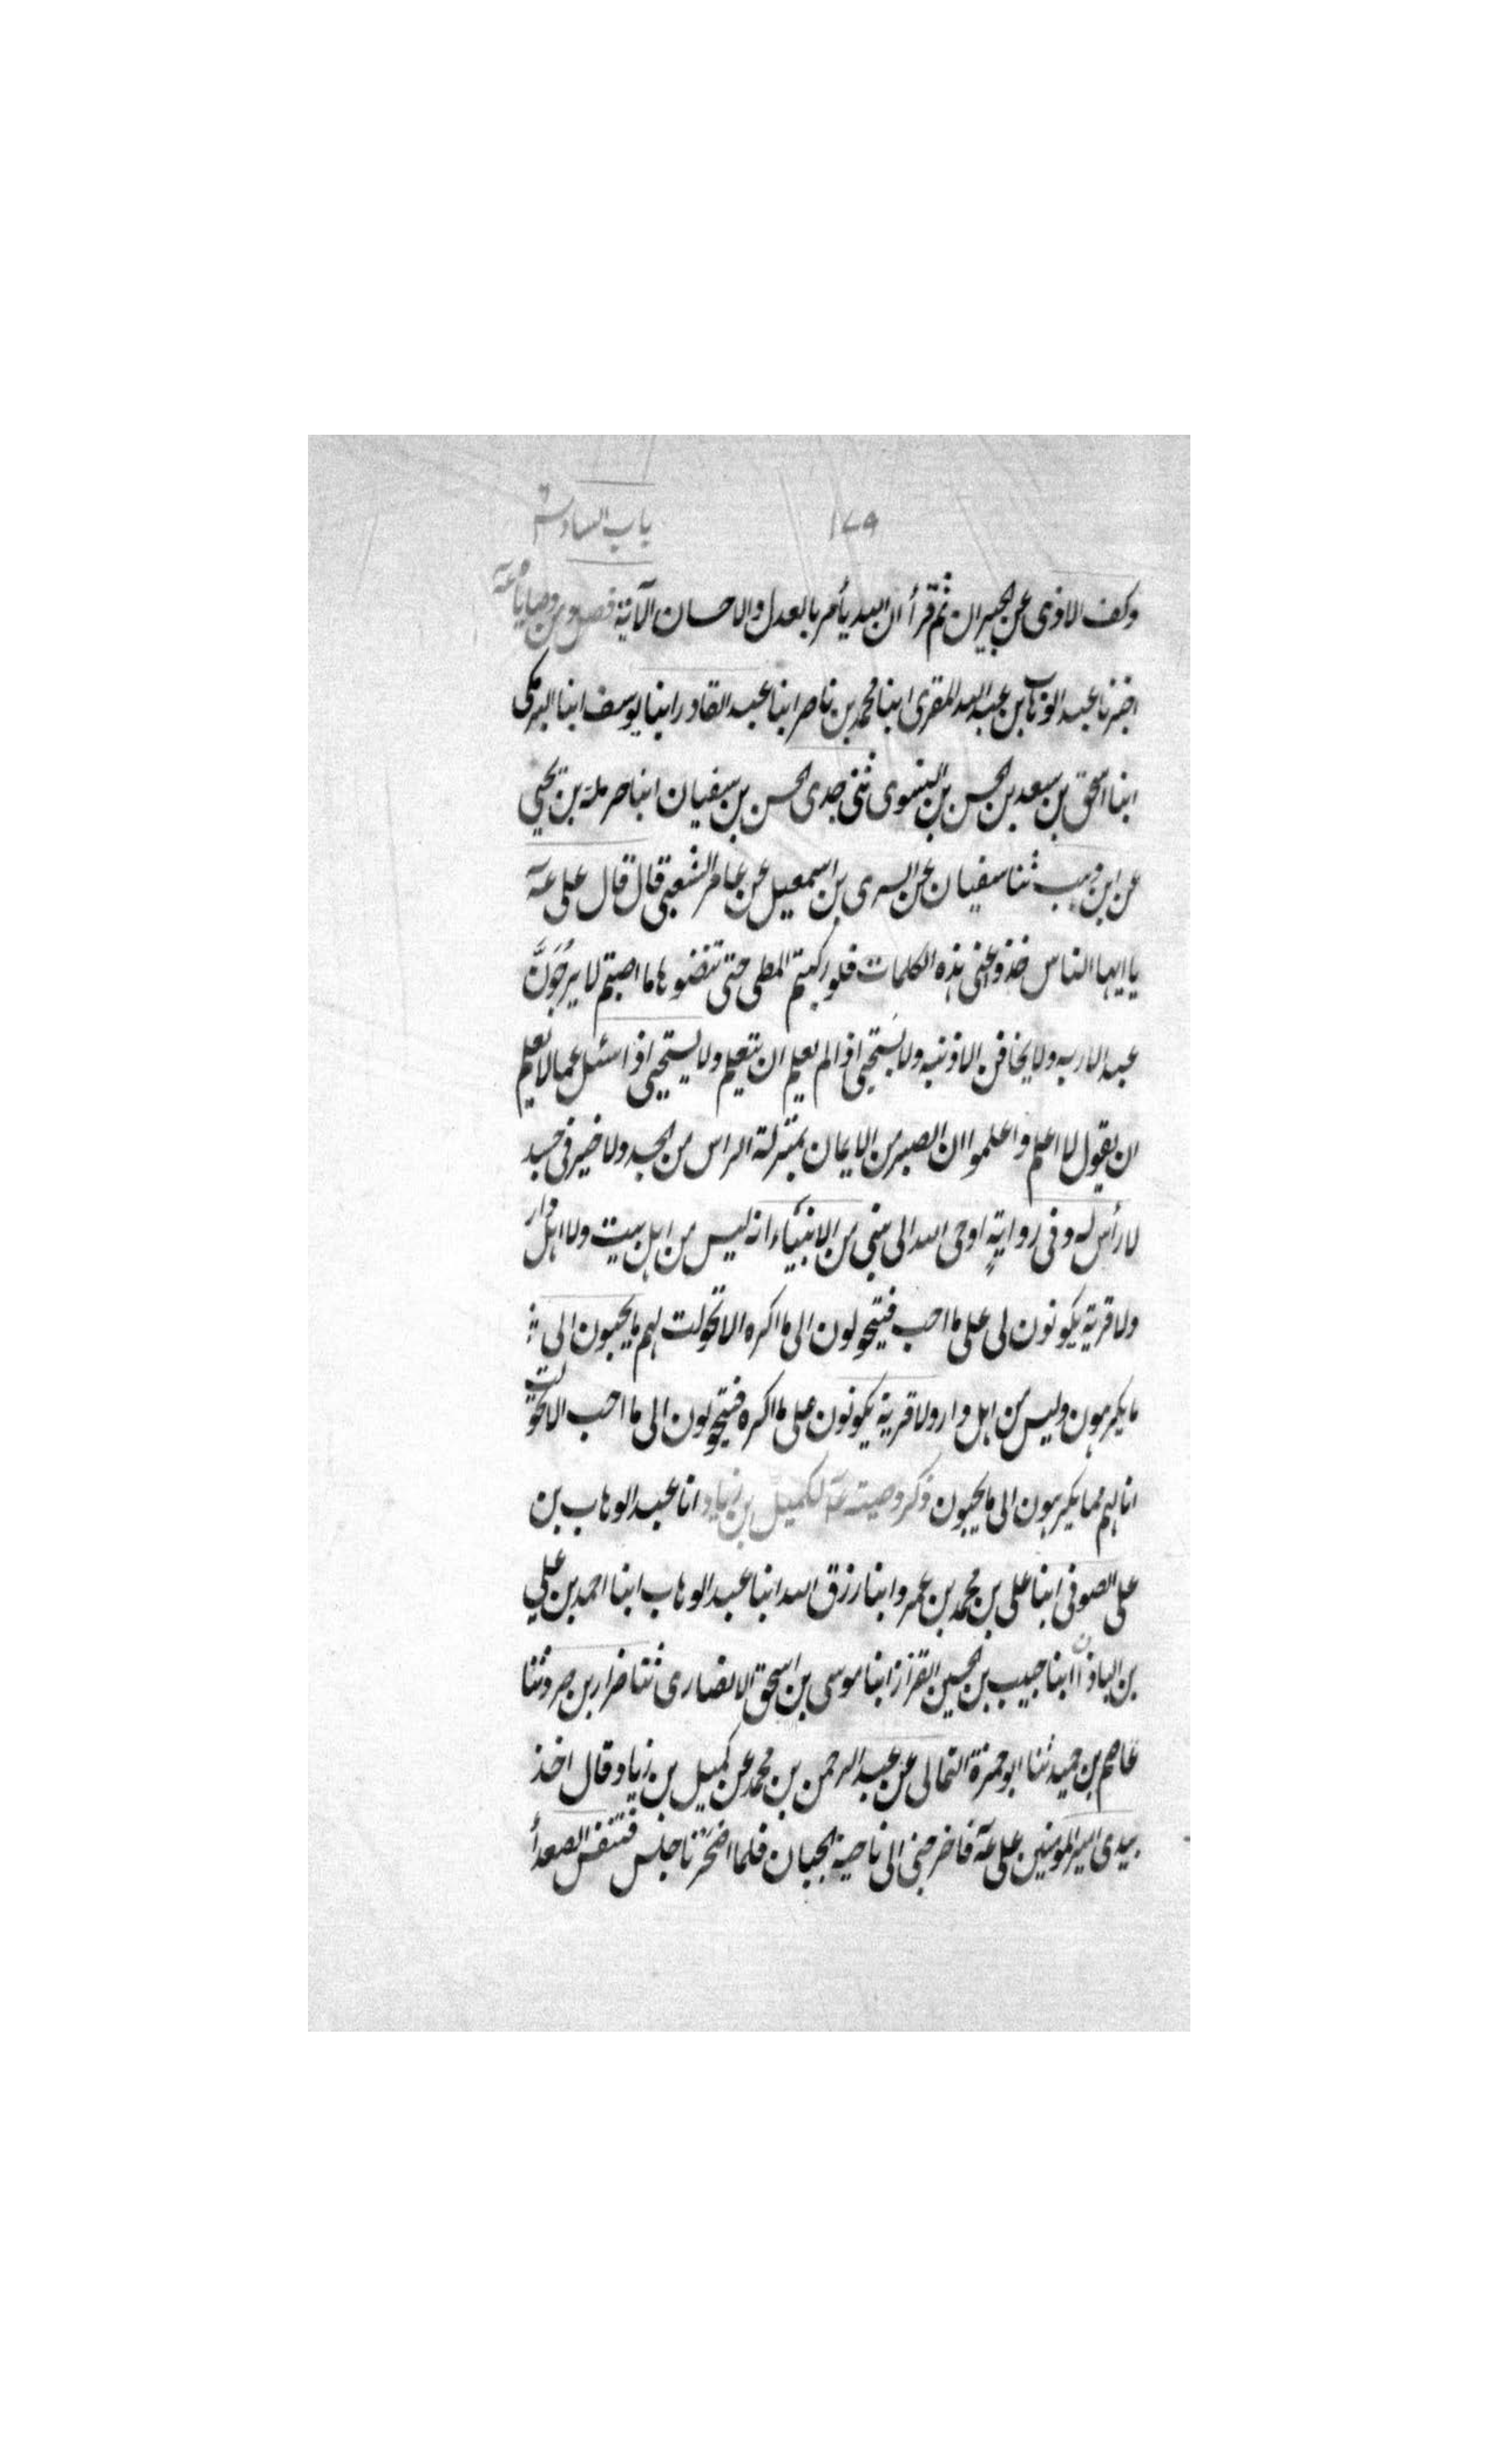 ١٧٩ باب السادس
وكف الاذى عن الجيران ثم قرأ ان الله يأمر بالعدل والاحسان الآية فصل ومن وصاياه عة
اخبرنا عبد الوهاب بن عبد الله المقرى ابنا محمد بن ناصر ابنا عبد القادر ابنا يوسف ابنا البرمكى
ابنا اسحق بن سعد بن الحسن بن النسوى ثنى جدى الحسن بن سفيان ابنا حرملة بن يحيى
عن ابن وهب ثنا سفيان عن السرى بن اسمعيل عن عامر الشعبى قال قال على عة
يا ايها الناس خذوا عنى هذه الكلمات فلو ركبتم المطى حتى تنضوها ما اصبتم لا يرجونّ
عبد الا ربه ولا يخافن الا ذنبه ولا يستحيى اذا لم يعلم ان يتعلم ولا يستحيى اذا سئل عما لا يعلم
ان يقول لا اعلم واعلموا ان الصبر من الايمان بمنزلة الراس من الجسد ولا خير فى جسد
لا رأس له وفى رواية اوحى الله الى نبى من الانبياء انه ليس من اهل بيت ولا اهل دار
ولا قرية يكونون لى على ما احب فيتحولون الى ما اكره الا تحولت لهم ما يحبون الى
ما يكرهون وليس من اهل دار ولا قرية يكونون على ما اكره فيتحولون الى ما احب الا تحولت
انا لهم مما يكرهون الى ما يحبون ذكر وصيته عة لكميل بن زياد انا عبد الوهاب بن
على الصوفى ابنا على بن محمد بن عمرو ابنا رزق الله ابنا عبد الوهاب ابنا احمد بن على
بن الباذا ابنا حبيب بن الحسين القزاز ابنا موسى بن اسحق الانصارى ثنا ضرار بن صرد ثنا
عاصم بن حميد ثنا ابو حمزة الثمالى عن عبد الرحمن بن محمد عن كميل بن زياد قال اخذ
بيدى امير المؤمنين على عة فاخرجنى الى ناحية الجبان فلما اصحرنا جلس فتنفس الصعدأ